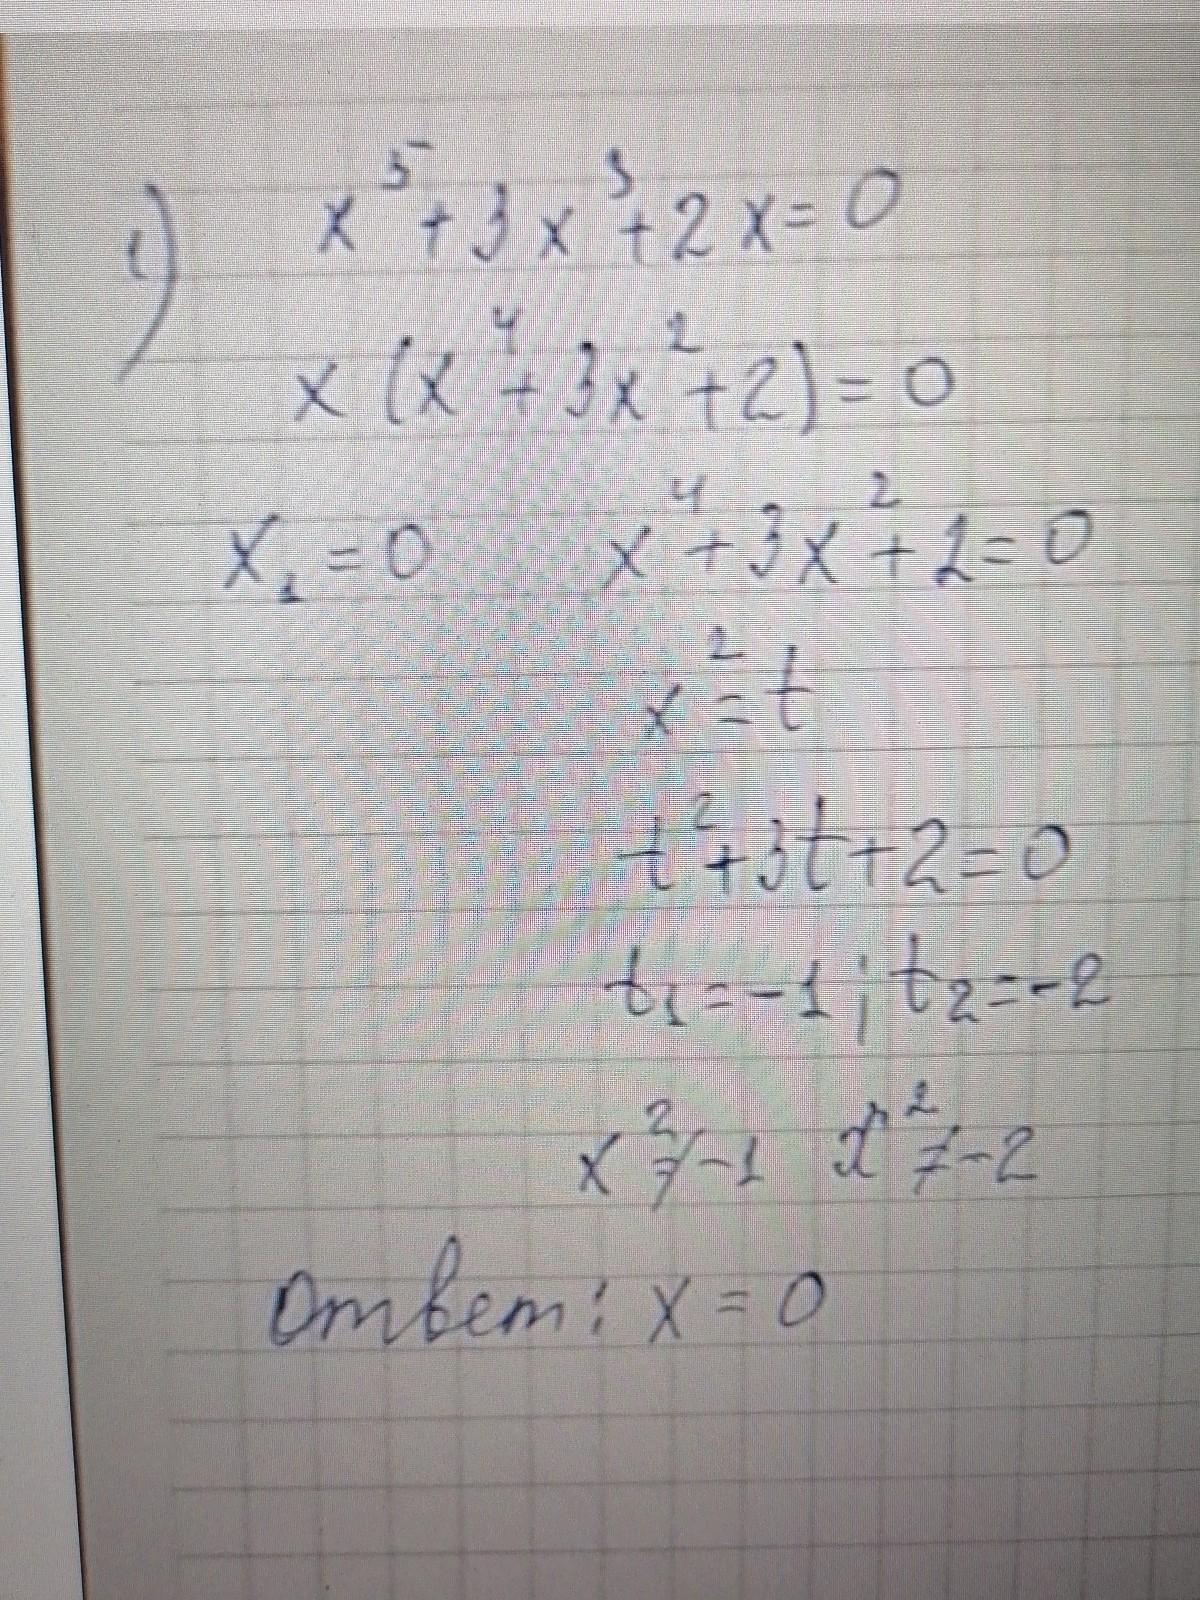 1) x⁵ + 3x³ + 2x = 0
x (x⁴ + 3x² + 2) = 0
x₁ = 0 x⁴ + 3x² + 2 = 0
x² = t
t² + 3t + 2 = 0
t₁ = -1; t₂ = -2
x² ≠ -1 x² ≠ -2
Ответ: x = 0